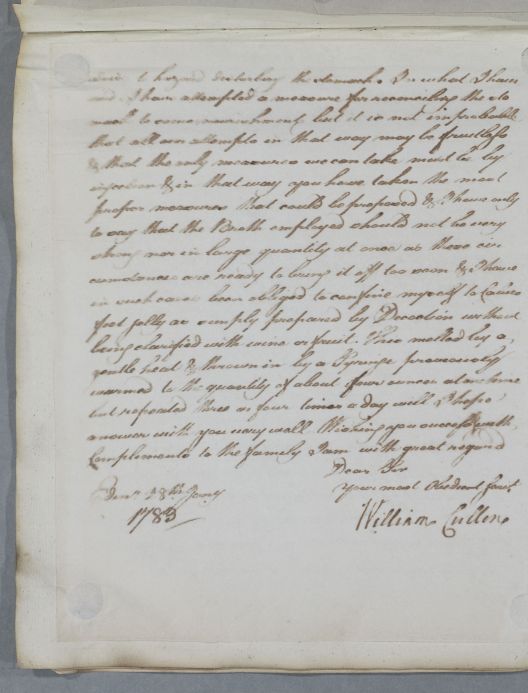 to hazard disturbing the stomach. In what I have
said I have attempted a measure for reconciling the sto
mach to some nourishment but it is not improbable
that all our attempts in that way may be fruitless
& that the only measures we can take must be by
injection & in that way you have taken the most
proper measures that could be proposed & I have only
to say that the Broth employed should not be very
strong nor in large quantity at once as these cir
cumstances are ready to bring it off too soon & I have
in such cases been obliged to confine myself to Calves
foot jelly as simply prepared by Decoction without
being clarified with wine or fruit. This melted by a
gentle heat & thrown in by a Syringe previously
warmed to the quantity of about four ounces at a time
but repeated three or four times a day will I hope
answer with you very well. Wishing you success with
Complements to the family I am with great regard
Dear Sir
Your most Obedient Servt
William Cullen
Edinr 28th Janry
1783